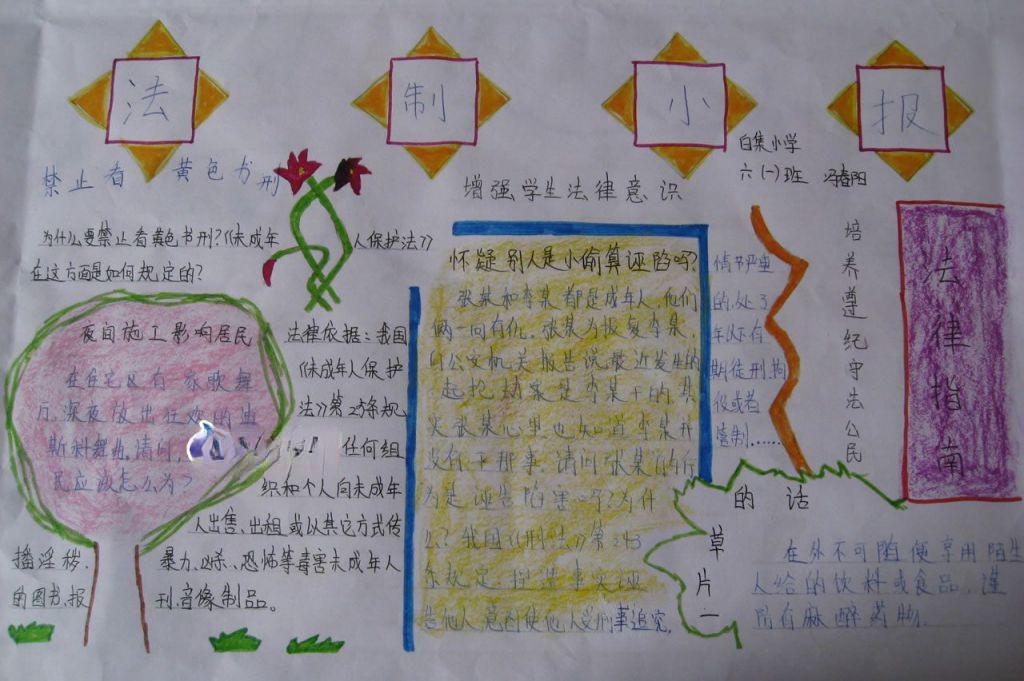 法 制 小 报
白集小学
六(一)班 冯春阳
禁止看 黄色书刑
为什么要禁止看黄色书刑?《未成年人保护法》
在这方面是如何规定的?
夜间施工影响居民
在住宅区有一家歌舞
厅,深夜放出狂欢的迪
斯科舞曲,请问,
民应该怎么为?
法律依据:我国
《未成年人保护
法》第25条规
任何组
织和个人向未成年
人出售、出租或以其它方式传
播淫秽、暴力、凶杀、恐怖等毒害未成年人
的图书、报刊、音像制品。
增强学生法律意识
怀疑别人是小偷算诬陷吗?
张某和李某都是成年人,他们
俩一向有仇,张某为报复李某
向公安机关报告说,最近发生的
一起抢劫案是李某干的,其
实张某心里也知道李某并
没有干那事,请问张某的行
为是诬告陷害吗?为什
么?我国《刑法》第243
条规定,捏造事实诬
告他人,意图使他人受刑事追究,
情节严重
的,处3
年以下有
期徒刑、拘
役或者
管制......
培养遵纪守法公民
法律指南
草片一
的话
在外不可随便享用陌生
人给的饮料或食品,谨
防有麻醉药物.